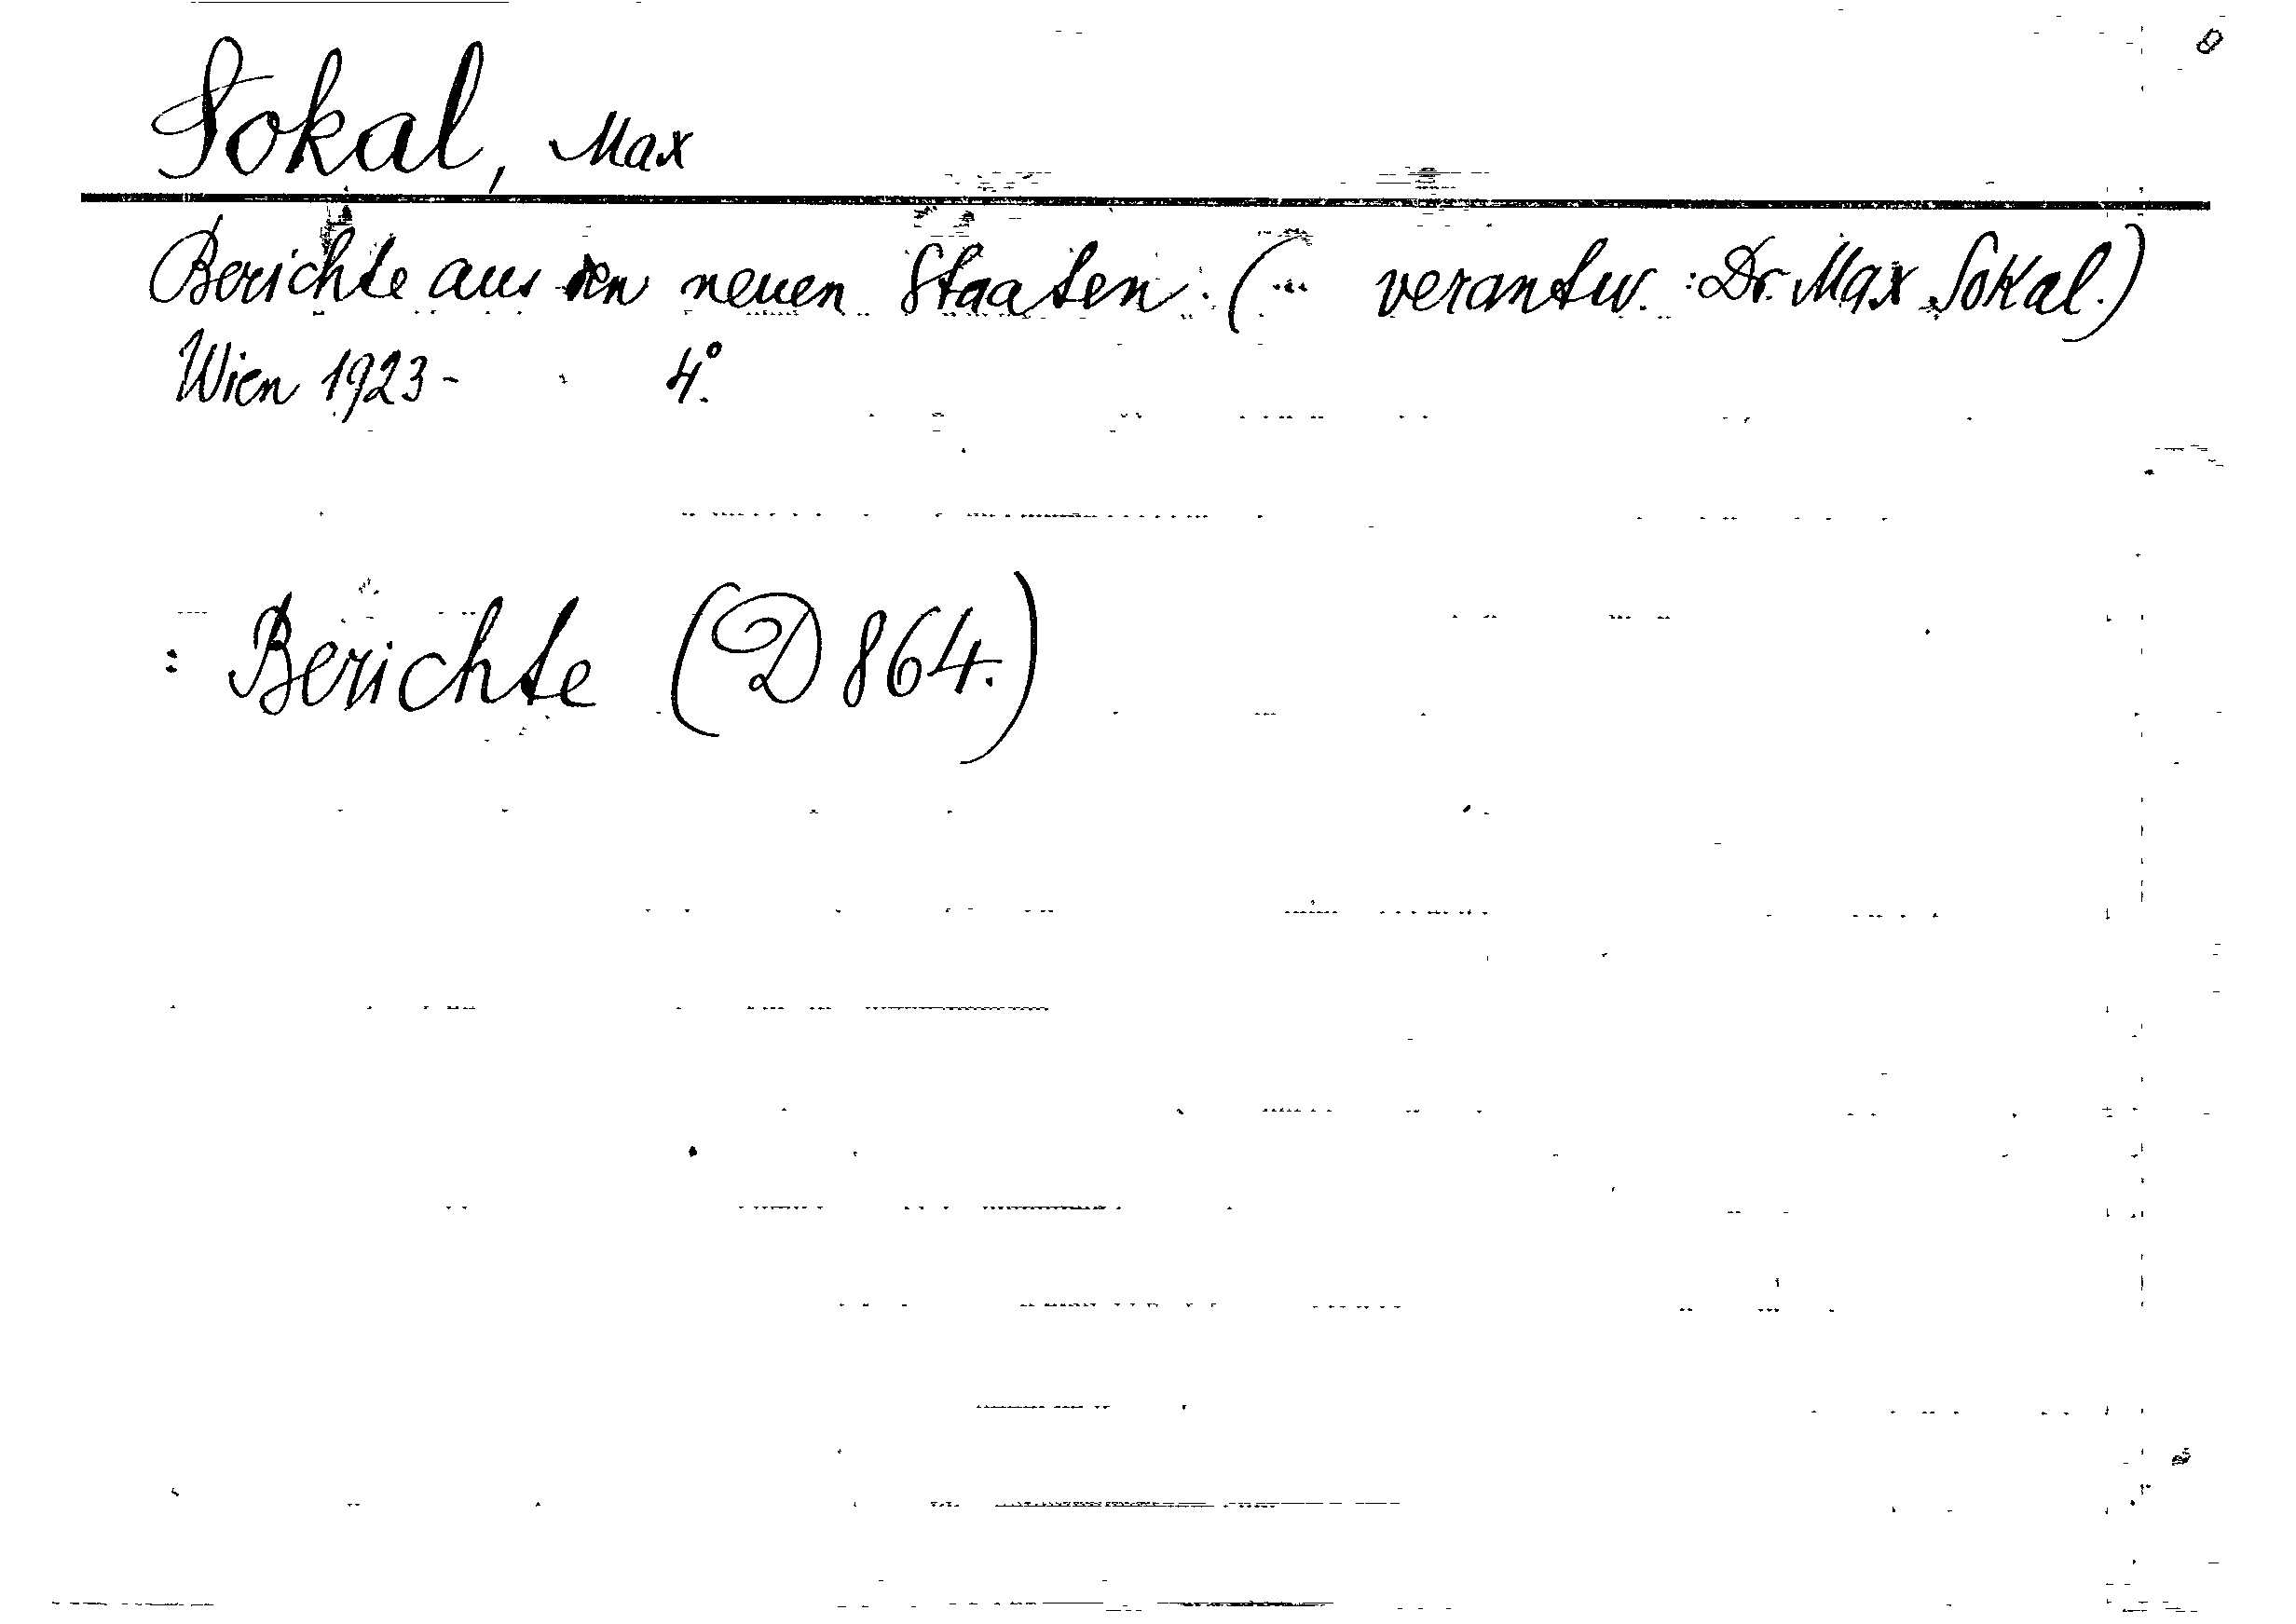 Sokal, Max
Berichte aus den neuen Staaten. (... verantw. : Dr. Max Sokal.)
Wien 1923- 4°.
: Berichte (D 864.)